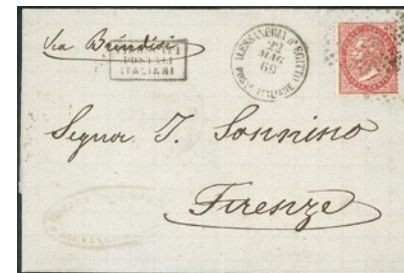 Via Brindisi
POSTALI
ITALIANI
ALESSANDRIA D'EGITTO
22
MAG
68
POSTE ITALIANE
Signor I. Sonnino
Firenze